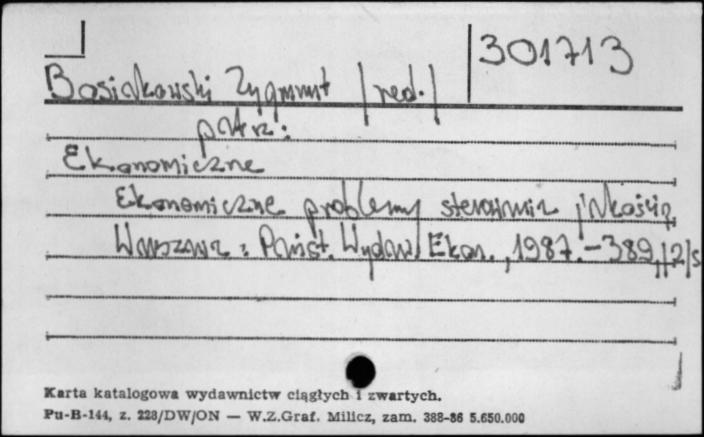 301713
Bosiakowski Zygmunt /red./
patrz:
Ekonomiczne
Ekonomiczne problemy sterowania jakością
Warszawa : Państ. Wydaw. Ekon., 1987. – 389, /2/ s
Karta katalogowa wydawnictw ciągłych i zwartych.
Pu-B-144, z. 228/DW/ON — W.Z.Graf. Milicz, zam. 388-86 5.650.000